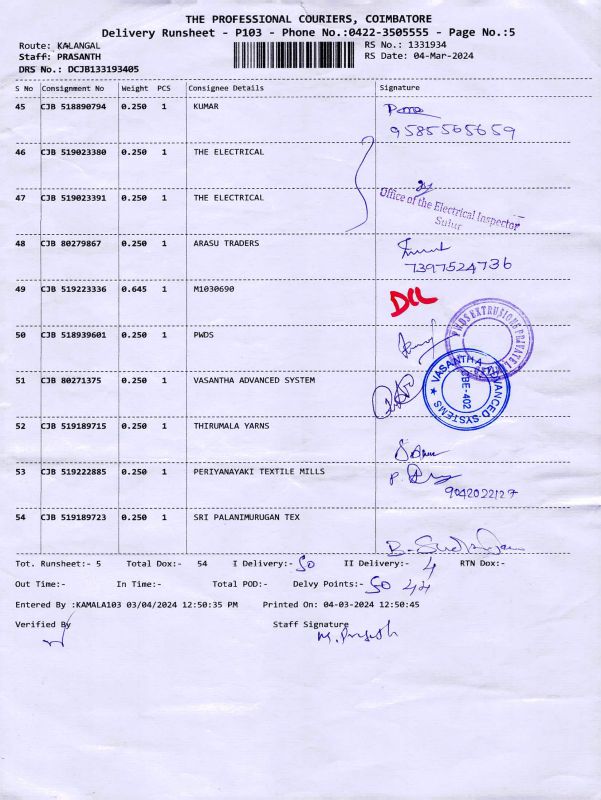 THE PROFESSIONAL COURIERS, COIMBATORE
Delivery Runsheet - P103 - Phone No.:0422-3505555 - Page No.:5
Route: KALANGAL
RS No.: 1331934
Staff: PRASANTH
RS Date: 04-Mar-2024
DRS No.: DCJB133193405
S No Consignment No Weight PCS Consignee Details Signature
45 CJB 518890794 0.250 1 KUMAR
9585565659
46 CJB 519023380 0.250 1 THE ELECTRICAL
47 CJB 519023391 0.250 1 THE ELECTRICAL
Office of the Electrical Inspector
Sulur
48 CJB 80279867 0.250 1 ARASU TRADERS
7397524736
49 CJB 519223336 0.645 1 M1030690
DCL
50 CJB 518939601 0.250 1 PWDS
PWDS EXTRUSIONS PRIVATE L
51 CJB 80271375 0.250 1 VASANTHA ADVANCED SYSTEM
VASANTHA ADVANCED SYSTEMS
CBE-402
52 CJB 519189715 0.250 1 THIRUMALA YARNS
53 CJB 519222885 0.250 1 PERIYANAYAKI TEXTILE MILLS
9042022127
54 CJB 519189723 0.250 1 SRI PALANIMURUGAN TEX
Tot. Runsheet:- 5 Total Dox:- 54 I Delivery:- 50 II Delivery:- 4 RTN Dox:-
Out Time:- In Time:- Total POD:- Delvy Points:- 50 44
Entered By :KAMALA103 03/04/2024 12:50:35 PM Printed On: 04-03-2024 12:50:45
Verified By Staff Signature